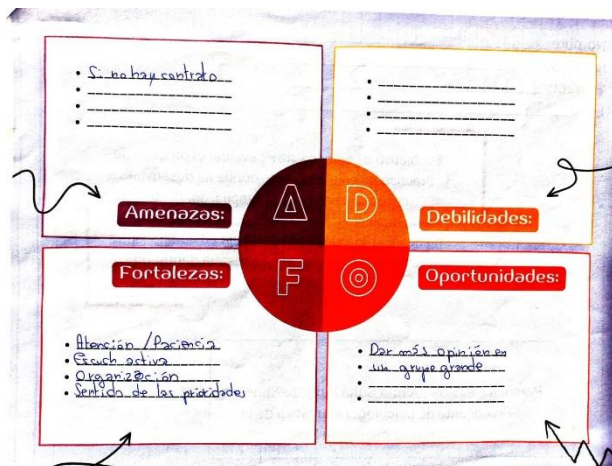 • Si no hay contrato
•
•
•
•
•
•
•
A
D
Amenazas:
Debilidades:
Fortalezas:
F
O
Oportunidades:
• Atención / Paciencia
• Escuch activa
• Organización
• Sentido de las prioridades
• Dar más opinión en
• un grupo grande
•
•